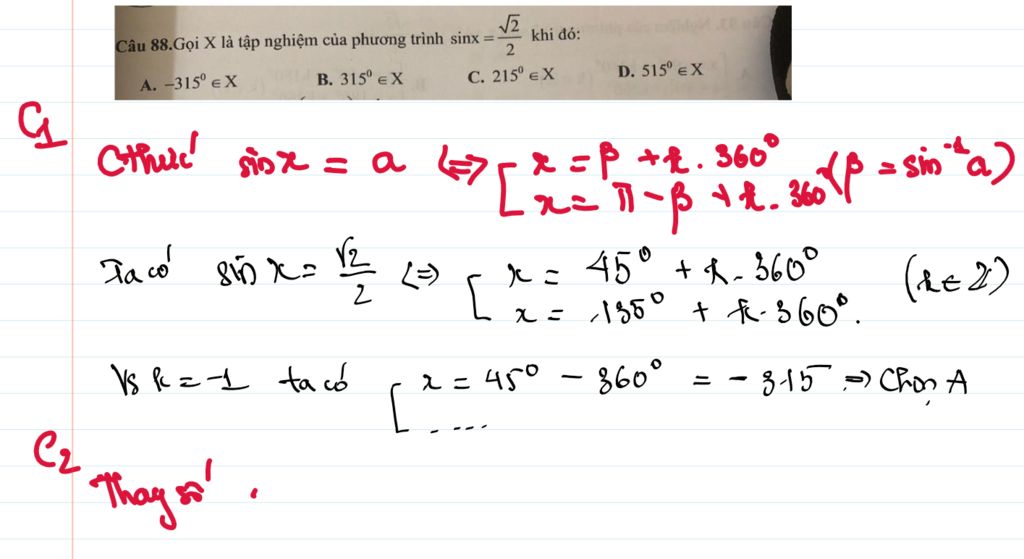 Câu 88.Gọi X là tập nghiệm của phương trình sinx = √2/2 khi đó:
A. −315⁰ ∈ X B. 315⁰ ∈ X C. 215⁰ ∈ X D. 515⁰ ∈ X
C1
Cthức sin x = a <=> [ x = β + k. 360⁰
x = π − β + k. 360 (β = sin⁻¹a)
Ta có sin x = √2/2 <=> [ x = 45⁰ + k. 360⁰ (k ∈ Z)
x = 135⁰ + k. 360⁰.
Vs k = −1 ta có [ x = 45⁰ − 360⁰ = − 315 => Chọn A
.....
C2
Thay số .